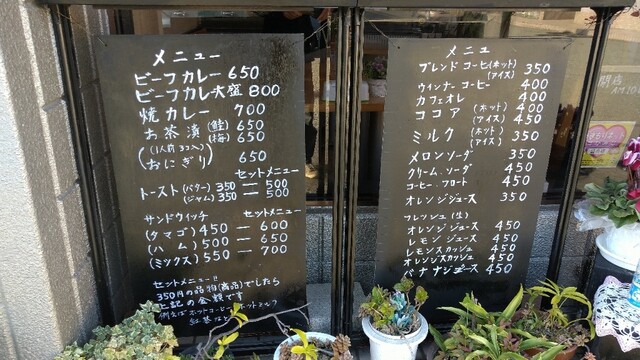 メニュー
ビーフカレー 650
ビーフカレー大盛 800
焼カレー 700
お茶漬(鮭) 650
(梅) 650
(1人前 3コへ)
(おにぎり) 650
セットメニュー
トースト(バター) 350 ― 500
(ジャム) 350 ― 500
サンドウィッチ セットメニュー
(タマゴ) 450 ― 600
(ハム) 500 ― 650
(ミックス) 550 ― 700
セットメニュー!!
350円の品物(商品)でしたら
上記の金額です
例えばホットコーヒー ホットミルク
紅茶
メニュ
ブレンドコーヒ(ホット) 350
(アイス)
ウインナーコーヒー 400
カフェオレ 400
ココア (ホット) 400
(アイス) 450
ミルク (ホット) 350
(アイス)
メロンソーダ 350
クリームソーダ 450
コーヒーフロート 450
オレンジジュース 350
フレッシュ(生)
オレンジジュース 450
レモンジュース 450
レモンスカッシュ 450
オレンジスカッシュ 450
バナナジュース 450
開店